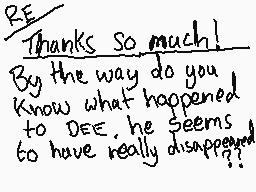 RE
Thanks so much!
By the way do you
know what happened
to DEE, he seems
to have really disappeared
??